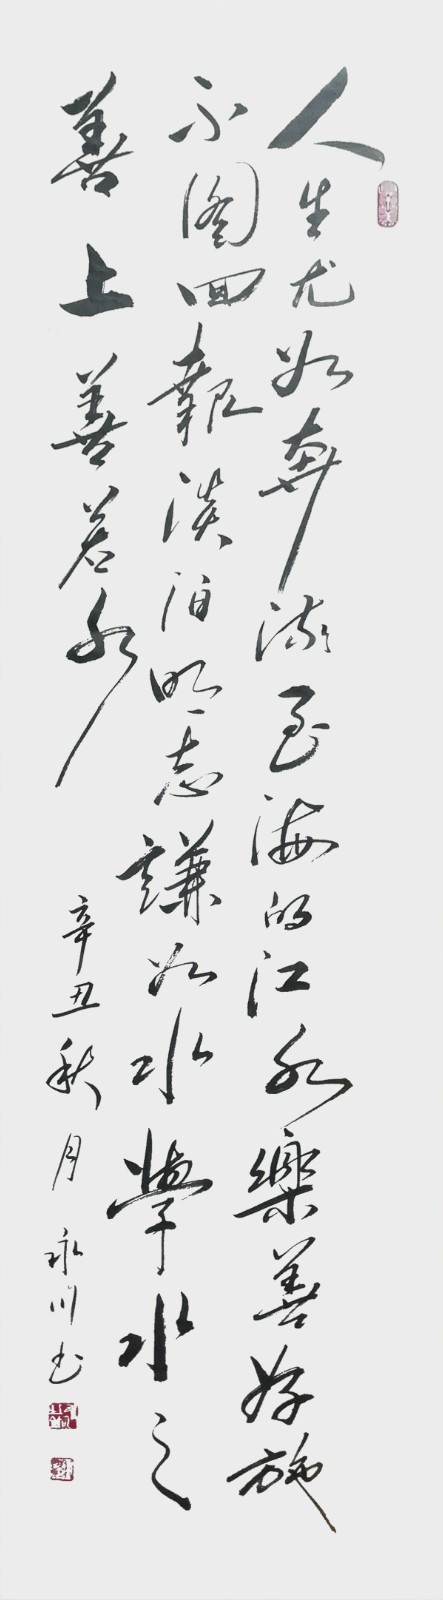 人生尤如奔流至海的江水樂善好施
不图回報淡泊明志謙如水學水之
善上善若水
辛丑秋月永川书